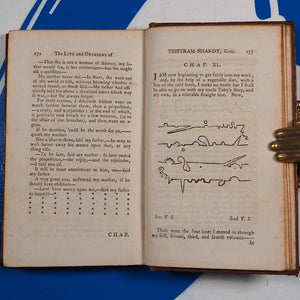 272 The LIFE and OPINIONS of
—That she is not a woman of science, my fa-
ther would say, is her misfortune—but she might
ask a question.—
My mother never did.—In short, she went out
of the world at last without knowing whether it
turned round, or stood still.—My father had offi-
ciously told her above a thousand times which
way it was,—but she always forgot.
For these reasons, a discourse seldom went on
much further betwixt them, than a proposition,
—a reply, and a rejoinder; at the end of which, it
generally took breath for a few minutes, (as in
the affair of the breeches), and then went on a-
gain.
If he marries, 'twill be the worse for us,—quoth
my mother.
Not a cherry-stone, said my father,—he may as
well batter away his means upon that, as any
thing else.
—To be sure, said my mother: so here ended
the proposition,—the reply,—and the rejoinder,
I told you of.
It will be some amusement to him, too,—said
my father.
A very great one, answered my mother, if he
should have children—
—Lord have mercy upon me,—said my father
to himself—
CHAP.
TRISTRAM SHANDY, Gent. 273
CHAP. XL.
I AM now beginning to get fairly into my work;
and, by the help of a vegetable diet, with a
few of the cold seeds, I make no doubt but I shall
be able to go on with my uncle Toby's story, and
my own, in a tolerable straight line. Now,
Inv. T. S. Scul. T. S.
These were the four lines I moved in through
my first, second, third, and fourth volumes—